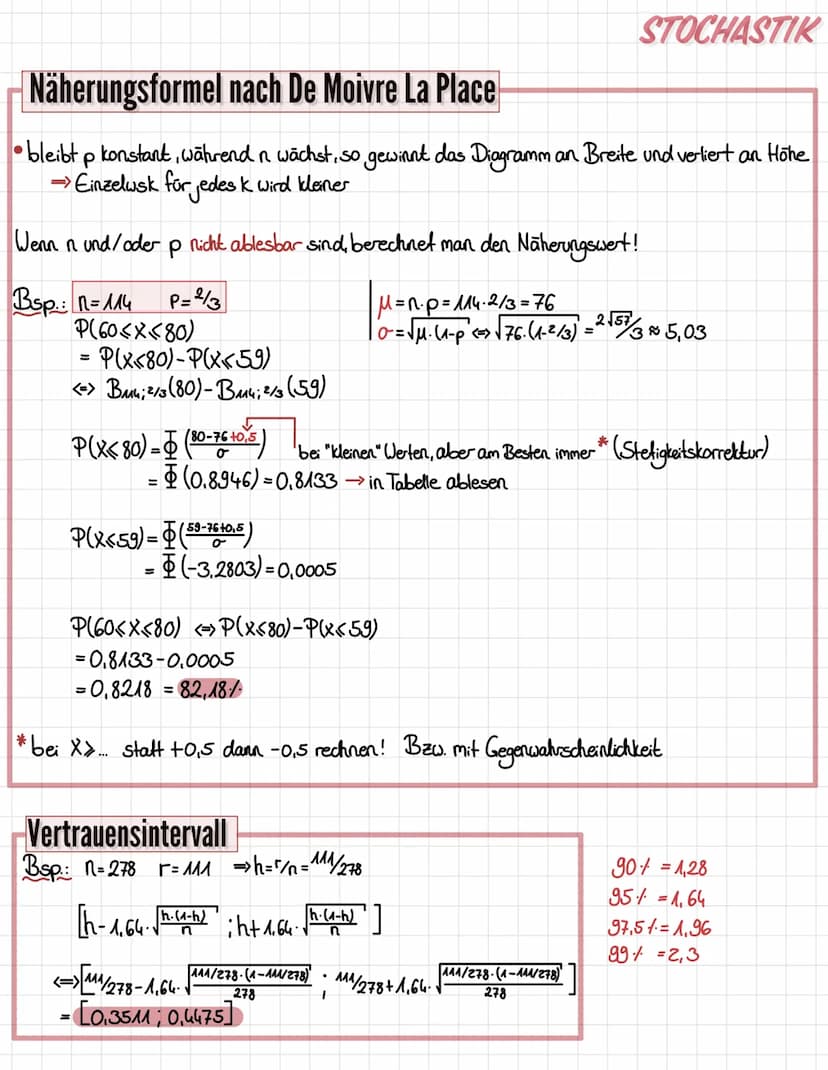 STOCHASTIK
Näherungsformel nach De Moivre La Place
• bleibt p konstant, während n wächst, so gewinnt das Diagramm an Breite und verliert an Höhe
⇒ Einzelwsk für jedes k wird kleiner
Wenn n und/oder p nicht ablesbar sind, berechnet man den Näherungswert!
Bsp.: n=114 P=2/3
μ=n·p=114·2/3=76
σ=√μ·(1-p ⇔ √76·(1-2/3) = 2√57/3 ≈ 5,03
P(60≤X≤80)
= P(X≤80)-P(X≤59)
⇔ B114;2/3(80)-B114;2/3(59)
P(X≤80)=Φ((80-76+0,5)/σ) bei "kleinen" Werten, aber am Besten immer * (Stetigkeitskorrektur)
= Φ(0.8946)=0,8133 → in Tabelle ablesen
P(X≤59)=Φ((59-76+0,5)/σ)
= Φ(-3,2803)=0,0005
P(60≤X≤80) ⇔ P(X≤80)-P(X≤59)
=0,8133-0,0005
=0,8218 = 82,18%
* bei X≥... statt +0,5 dann -0,5 rechnen! Bzw. mit Gegenwahrscheinlichkeit
Vertrauensintervall
Bsp.: n=278 r=111 ⇒h=r/n=111/278
[h-1,64·√(h·(1-h)/n) ; h+1,64·√(h·(1-h)/n)]
⇔[111/278-1,64·√(111/278·(1-111/278)/278) ; 111/278+1,64·√(111/278·(1-111/278)/278)]
= [0,3511 ; 0,4475]
90% =1,28
95% =1,64
97,5%=1,96
99% =2,3